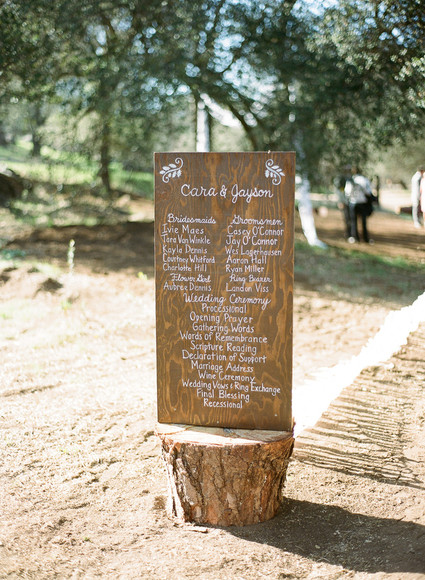 Cara & Jayson
Bridesmaids Groomsmen
Ivie Maes Casey O'Connor
Tara Van Winkle Jay O'Connor
Kayla Dennis Wes Lagerhausen
Courtney Whitney Aaron Hall
Charlotte Hill Ryan Miller
Flower Girl Ring Bearer
Aubree Dennis Landon Viss
Wedding Ceremony
Processional
Opening Prayer
Gathering Words
Words of Remembrance
Scripture Reading
Declaration of Support
Marriage Address
Wine Ceremony
Wedding Vows & Ring Exchange
Final Blessing
Recessional